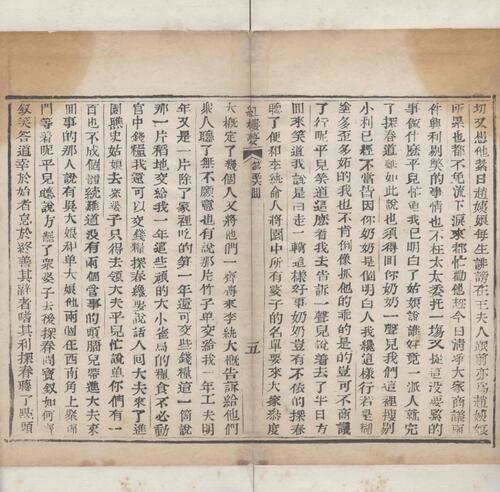 切又想他素日趙姨娘每生誹謗在王夫人跟前亦為趙姨娘
所累也都不免流下淚來都忙勸他趁今日清淨大家商議兩
件興利剔弊的事情也不枉太太委托一場又提這沒要緊的
事做什麼平兒忙道我已明白了姑娘說誰好竟一派人就完
了探春道雖如此說也須得回你奶奶一聲兒我們這裡搜剔
小利已經不當皆因你奶奶是個明白人我纔這樣行若是糊
塗多歪多妬的我也不肯倒像抓他的乖的是的豈可不商議
了行呢平兒笑道這麼着我去告訴一聲兒說着去了半日方
回來笑道我說是白走一輪這樣好事奶奶豈有不依的探春
聽了便和李紈命人將園中所有婆子的名單要來大家參度
紅樓夢 回 五
大概定了幾個人又將他們一齊傳來李紈大概告訴給他們
衆人聽了無不願意也有說那片竹子單交給我一年工夫明
年又是一片除了家裡吃的笋一年還可交些錢糧這一個說
那一片稻地交給我一年這些頑的大小雀鳥的糧食不必動
官中錢糧我還可以交錢糧探春纔要說話人回大夫來了進
園瞧史姑娘去衆婆子只得去領大夫平兒忙說單你們有一
百也不成個體統難道没有兩個管事的頭腦兒帶進大夫來
回事的那人說有吳大娘和單大娘他兩個在西南角上聚錦
門等着呢平兒聽說方罷了衆婆子去後探春問寶釵如何寶
釵笑答道幸於始者怠於終善其辭者嗜其利探春聽了點頭